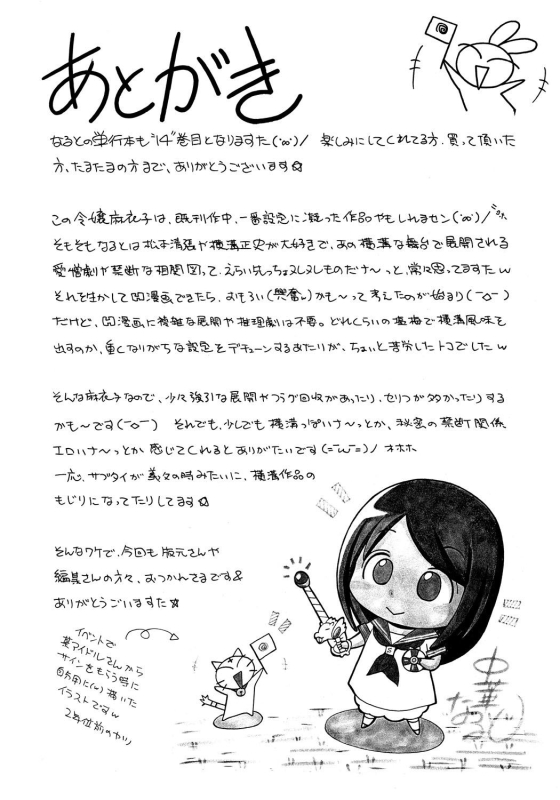 あとがき
なるとの単行本も"14"巻目となりますた(・ω・)ノ 楽しみにしてくれてる方、買って頂いた
方、たまたまの方まで、ありがとうございます☆
この令嬢麻衣子は、既刊作中、一番設定に凝った作品やもしれませン(・ω・)ノ
そもそもなるとは松本清張や横溝正史が大好きで、あの横溝な舞台で展開される
愛憎劇や禁断な相関図って、えらい
ものだナ〜っと、常々思ってますたw
それを生かして凹漫画できたら、おもろい(興奮)かも〜って考えたのが始まり(￣◇￣)
だけど、凹漫画に複雑な展開や推理劇は不要。どれくらいの塩梅で横溝風味を
出すのか、重くなりがちな設定をデチューンするあたりが、ちょいと苦労したトコでしたw
そんな麻衣子なので、少々強引な展開やフラグ回収があったり、セリフが多かったりする
かも〜です(￣◇￣) それでも、少しでも横溝っぽいナ〜っとか、秘密の禁断関係
エロいナ〜っとか感じてくれるとありがたいです(=￣w￣=)ノ オホホ
一応、サブタイが義々の時みたいに、横溝作品の
もじりになってたりしてます☆
そんなワケで、今回も版元さんや
編集さんの方々、おつかれさまです&
ありがとうございますた☆
イベントで
某アイドルさんから
サインをもらう時に
描いた
イラストですw
2年位前のカツ
中華
なると